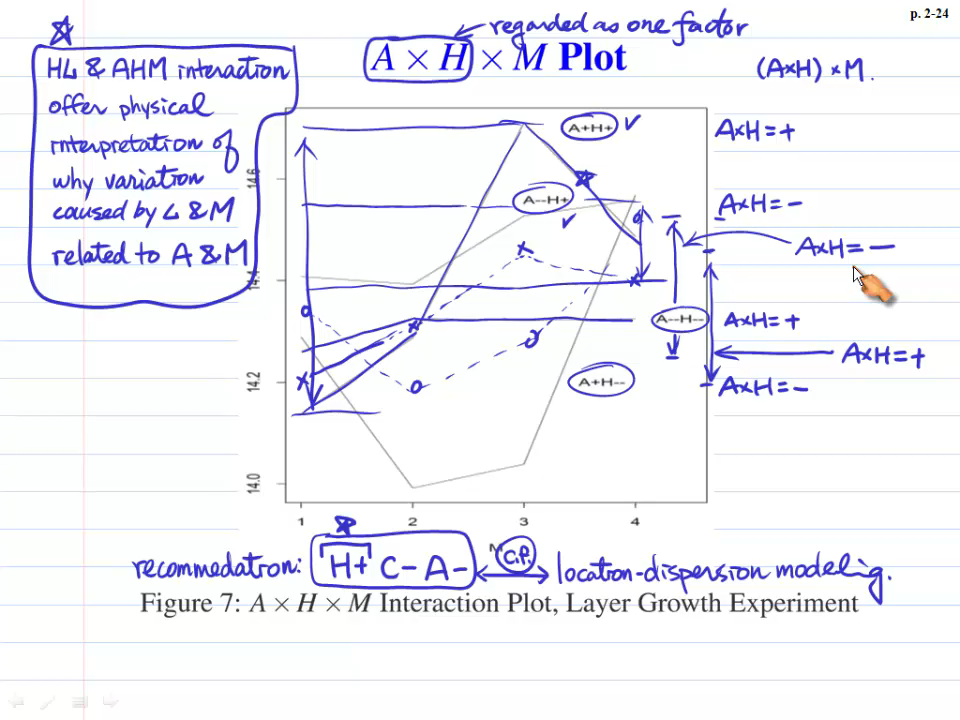 p. 2-24
regarded as one factor
A × H × M Plot
(A×H) × M.
HL & AHM interaction
offer physical
interpretation of
why variation
caused by L & M
related to A & M
A+H+
A×H = +
A--H+
A×H = -
A×H = -
A--H--
A×H = +
A×H = +
A+H--
A×H = -
14.6
14.4
14.2
14.0
1 2 3 4
M
recommedation: H+ C- A- C.P. location-dispersion modeling.
Figure 7: A × H × M Interaction Plot, Layer Growth Experiment